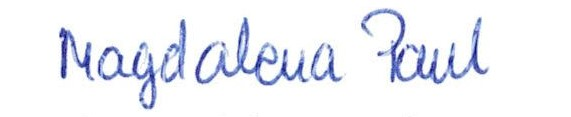 Magdalena Paul